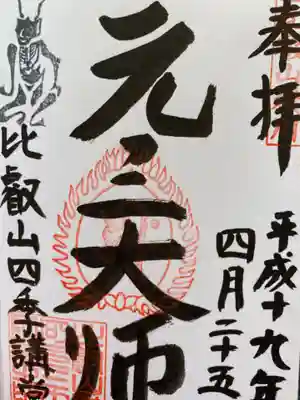 奉拝
平成十九年
四月二十五
元三大师
比叡山四季講堂